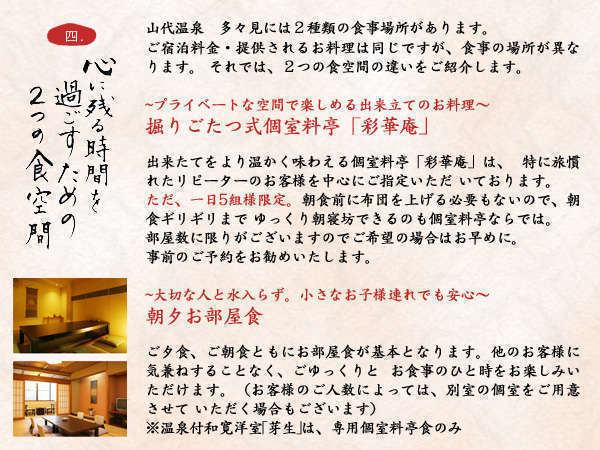 四.
心に残る時間を
過ごすための
２つの食空間
山代温泉　多々見には２種類の食事場所があります。
ご宿泊料金・提供されるお料理は同じですが、食事の場所が異な
ります。 それでは、２つの食空間の違いをご紹介します。
~プライベートな空間で楽しめる出来立てのお料理〜
掘りごたつ式個室料亭「彩華庵」
出来たてをより温かく味わえる個室料亭「彩華庵」は、 特に旅慣
れたリピーターのお客様を中心にご指定いただ いております。
ただ、一日5組様限定。朝食前に布団を上げる必要もないので、朝
食ギリギリまで ゆっくり朝寝坊できるのも個室料亭ならでは。
部屋数に限りがございますのでご希望の場合はお早めに。
事前のご予約をお勧めいたします。
~大切な人と水入らず。小さなお子様連れでも安心〜
朝夕お部屋食
ご夕食、ご朝食ともにお部屋食が基本となります。他のお客様に
気兼ねすることなく、ごゆっくりと　お食事のひと時をお楽しみい
ただけます。（お客様のご人数によっては、別室の個室をご用意
させて いただく場合もございます）
※温泉付和寛洋室「芽生」は、専用個室料亭食のみ